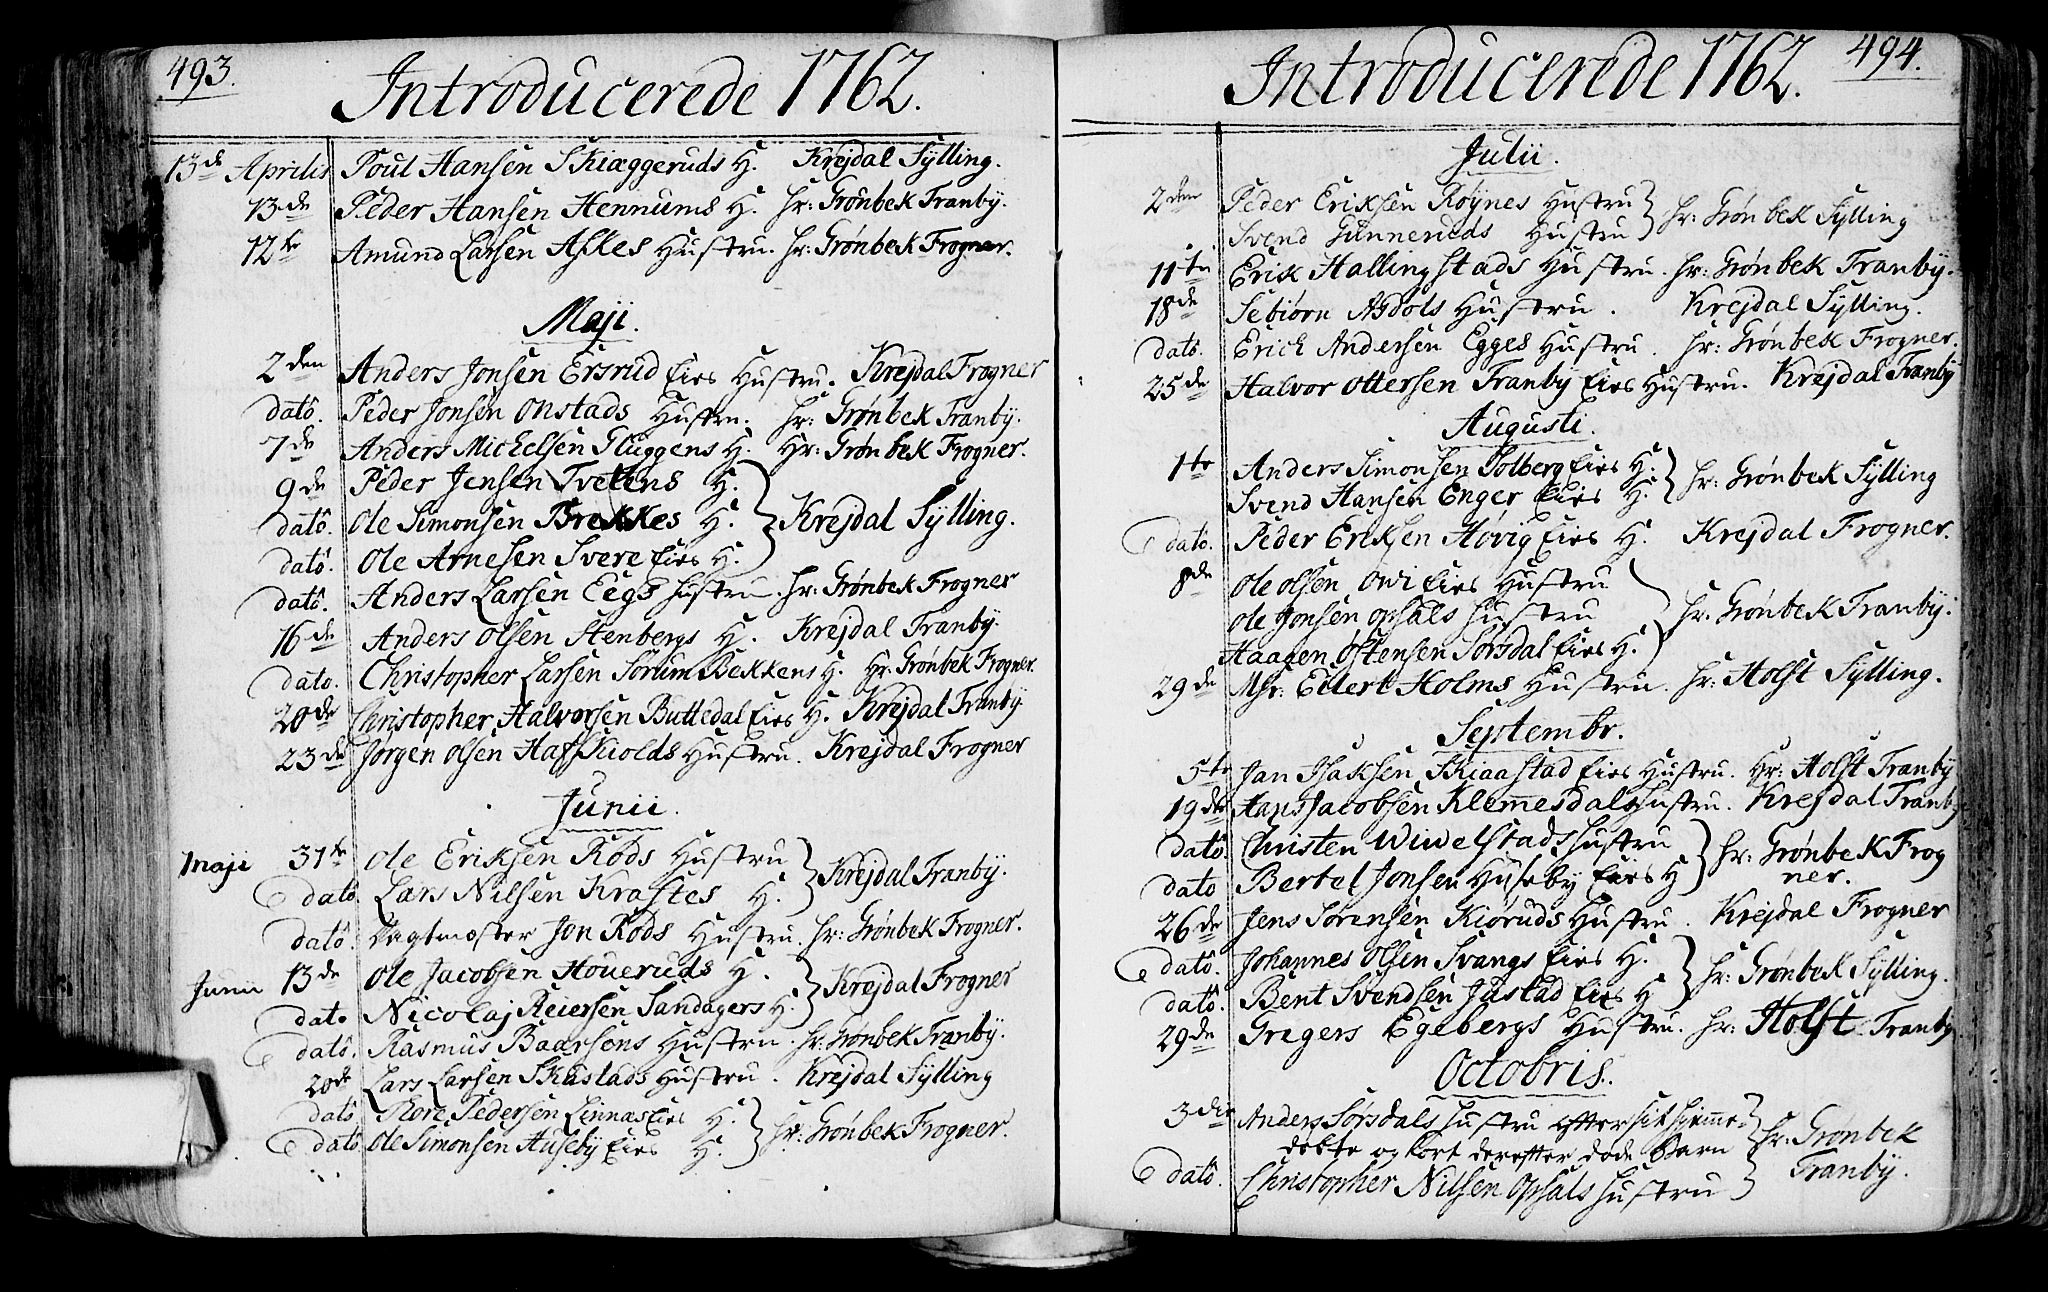 493.
Introducerede 1762.
13de Aprilis Poul Hansen Skiæggeruds H. Krejdal Sylling.
13de Peder Hansen Hennums H. Hr: Grønbek Tranby.
12te Amund Larsen Askes Hustru. Hr: Grønbek Frogner.
Maji.
2den Anders Jonsen Ersrud Eies Hustru. Krejdal Frogner
dato. Peder Jonsen Onstads Hustru. Hr: Grønbek Tranby.
7de Anders Michelsen Gluggens H. Hr: Grønbek Frogner.
9de Peder Jensen Tvetens H.
dato. Ole Simonsen Brekkes H. Krejdal Sylling.
dato. Ole Arnesen Svere Eies H.
dato. Anders Larsen Eegs Hustru. Hr: Grønbek Frogner
16de Anders Olsen Stenbergs H. Krejdal Tranby.
dato. Christopher Larsen Sørum Bekkens H. Hr: Grønbek Frogner.
20de Christopher Halvorsen Buttedal Eies H. Krejdal Tranby
23de Jørgen Olsen Hafskiolds Hustru. Krejdal Frogner
Junii.
Maji 31te Ole Eriksen Røds Hustru
dato Lars Nilsen Krastes H. Krejdal Tranby.
dato. Vagtmester Jon Røds Hustru. Hr: Grønbek Frogner.
Junii 13de Ole Jacobsen Houeruds H.
dato Nicolaj Reiersen Sandagers H. Krejdal Frogner
dato. Rasmus Baarsens Hustru. Hr: Grønbek Tranby.
20de Lars Larsen Skustads Hustru. Krejdal Sylling
dato Thore Pedersen Linnæs Eies H.
dato Ole Simonsen Huseby Eies H. Hr: Grønbek Frogner.
494.
Introducerede 1762.
Julii.
2den Peder Eriksen Røynes Hustru
Svend Gunneruds Hustru Hr: Grønbek Sylling
11te Erik Hallingstads Hustru. Hr: Grønbek Tranby.
18de Sebiørn Asdøls Hustru. Krejdal Sylling.
dato. Erich Andersen Egges Hustru. Hr: Grønbek Frogner.
25de Halvor Ottersen Tranby Eies Hustru. Krejdal Tranby
Augusti.
1te Anders Simonsen Solberg Eies H.
Svend Hansen Enger Eies H. Hr: Grønbek Sylling
dato. Peder Eriksen Høvig Eies H. Krejdal Frogner.
8de Ole Olsen Owi Eies Hustru
Ole Jonsen Opsals Hustru Hr: Grønbek Tranby.
Haagen Østensen Sørsdal Eies H.
29de Msr: Eilert Holms Hustru. Hr: Holst Sylling.
Septembr.
5te Jan Isaksen Skiaastad Eies Hustru. Hr: Holst Tranby
19de Hans Jacobsen Klemmesdals Hustru. Krejdal Tranby
dato Christen Wiwelstads Hustru
dato Bertel Jonsen Huseby Eies H Hr: Grønbek Frog
ner.
26de Jens Sørensen Kiøruds Hustru. Krejdal Frogner
dato. Johannes Olsen Svangs Eies H.
dato. Bent Svendsen Justad Eies H Hr: Grønbek Sylling.
29de Gregers Egebergs Hustru. Hr: Holst Tranby
Octobris.
3die Anders Sørsdals Hustru efter sit hjemme=
døbte og kort derefter døde Barn Hr: Grønbek
dato. Christopher Nilsen Opsals Hustru Tranby.